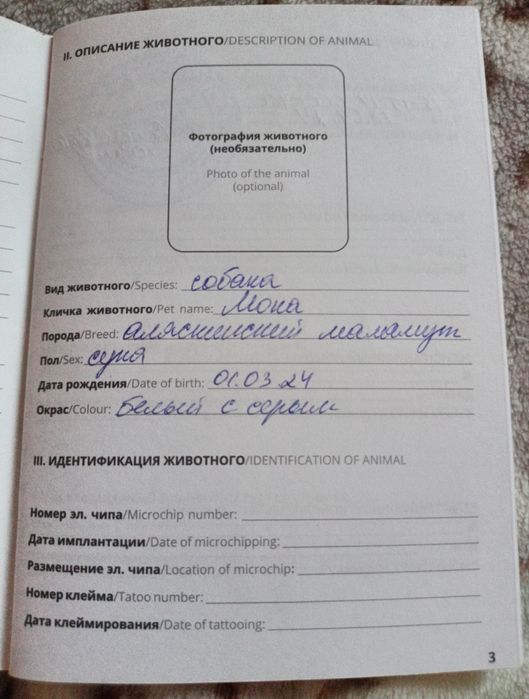 II. ОПИСАНИЕ ЖИВОТНОГО/DESCRIPTION OF ANIMAL
Фотография животного
(необязательно)
Photo of the animal
(optional)
Вид животного/Species: собака
Кличка животного/Pet name: Мока
Порода/Breed: аляскинский маламут
Пол/Sex: сука
Дата рождения/Date of birth: 01.03.24
Окрас/Colour: белый с серым
III. ИДЕНТИФИКАЦИЯ ЖИВОТНОГО/IDENTIFICATION OF ANIMAL
Номер эл. чипа/Microchip number:
Дата имплантации/Date of microchipping:
Размещение эл. чипа/Location of microchip:
Номер клейма/Tatoo number:
Дата клеймирования/Date of tattooing:
3